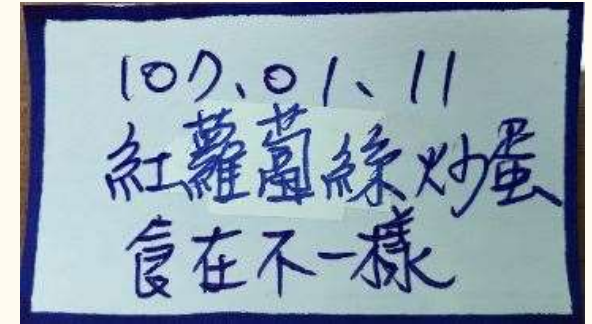 107、01、11
紅蘿蔔絲炒蛋
食在不一樣